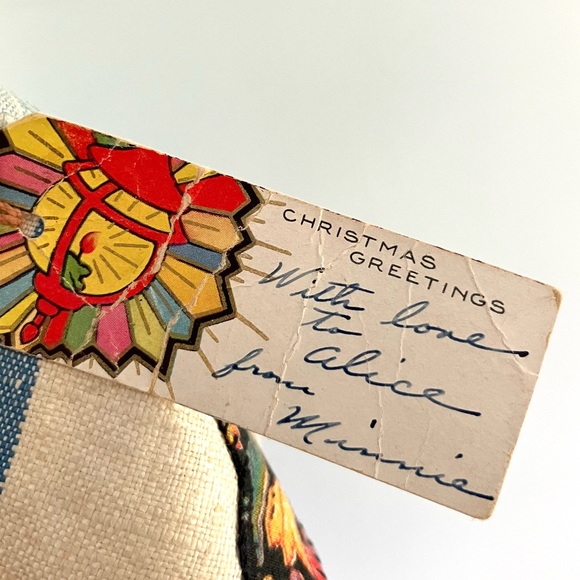 CHRISTMAS
GREETINGS
With love
to
Alice
from
Minnie